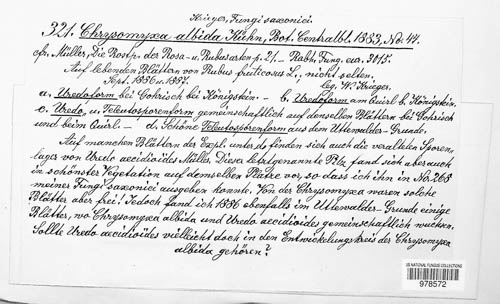 Krieger, Fungi saxonici.
321. Chrysomyxa albida Kühn, Bot. Centralbl. 1883, No. 44.
cfr. Müller, Die Rostp. der Rosa- u. Rubusarten p. 21. — Rabh., Fung. eur. 3015.
Auf lebenden Blättern von Rubus fruticosus L., nicht selten.
Sept. 1886 u. 1887. leg. W. Krieger.
a. Uredoform bei Gohrisch bei Königstein. — b. Uredoform am Quirl b. Königstein.
c. Uredo, u. Teleutosporenform gemeinschaftlich auf denselben Blättern bei Gohrisch
und beim Quirl. — d. Schöne Teleutosporenform aus dem Uttewalder-Grunde.
Auf manchen Blättern der Expl. unter b. finden sich auch die veralteten Sporen-
lager von Uredo aecidioides Müller. Dieser letztgenannte Pilz fand sich aber auch
in schönster Vegetation auf demselben Platze vor, so dass ich ihn in No. 265
meiner Fungi saxonici ausgeben konnte. Von der Chrysomyxa waren solche
Blätter aber frei! Jedoch fand ich 1886 ebenfalls im Uttewalder-Grunde einige
Blätter, wo Chrysomyxa albida und Uredo aecidioides gemeinschaftlich wuchsen.
Sollte Uredo aecidioides vielleicht doch in den Entwickelungskreis der Chrysomyxa
albida gehören?
US NATIONAL FUNGUS COLLECTIONS
978572